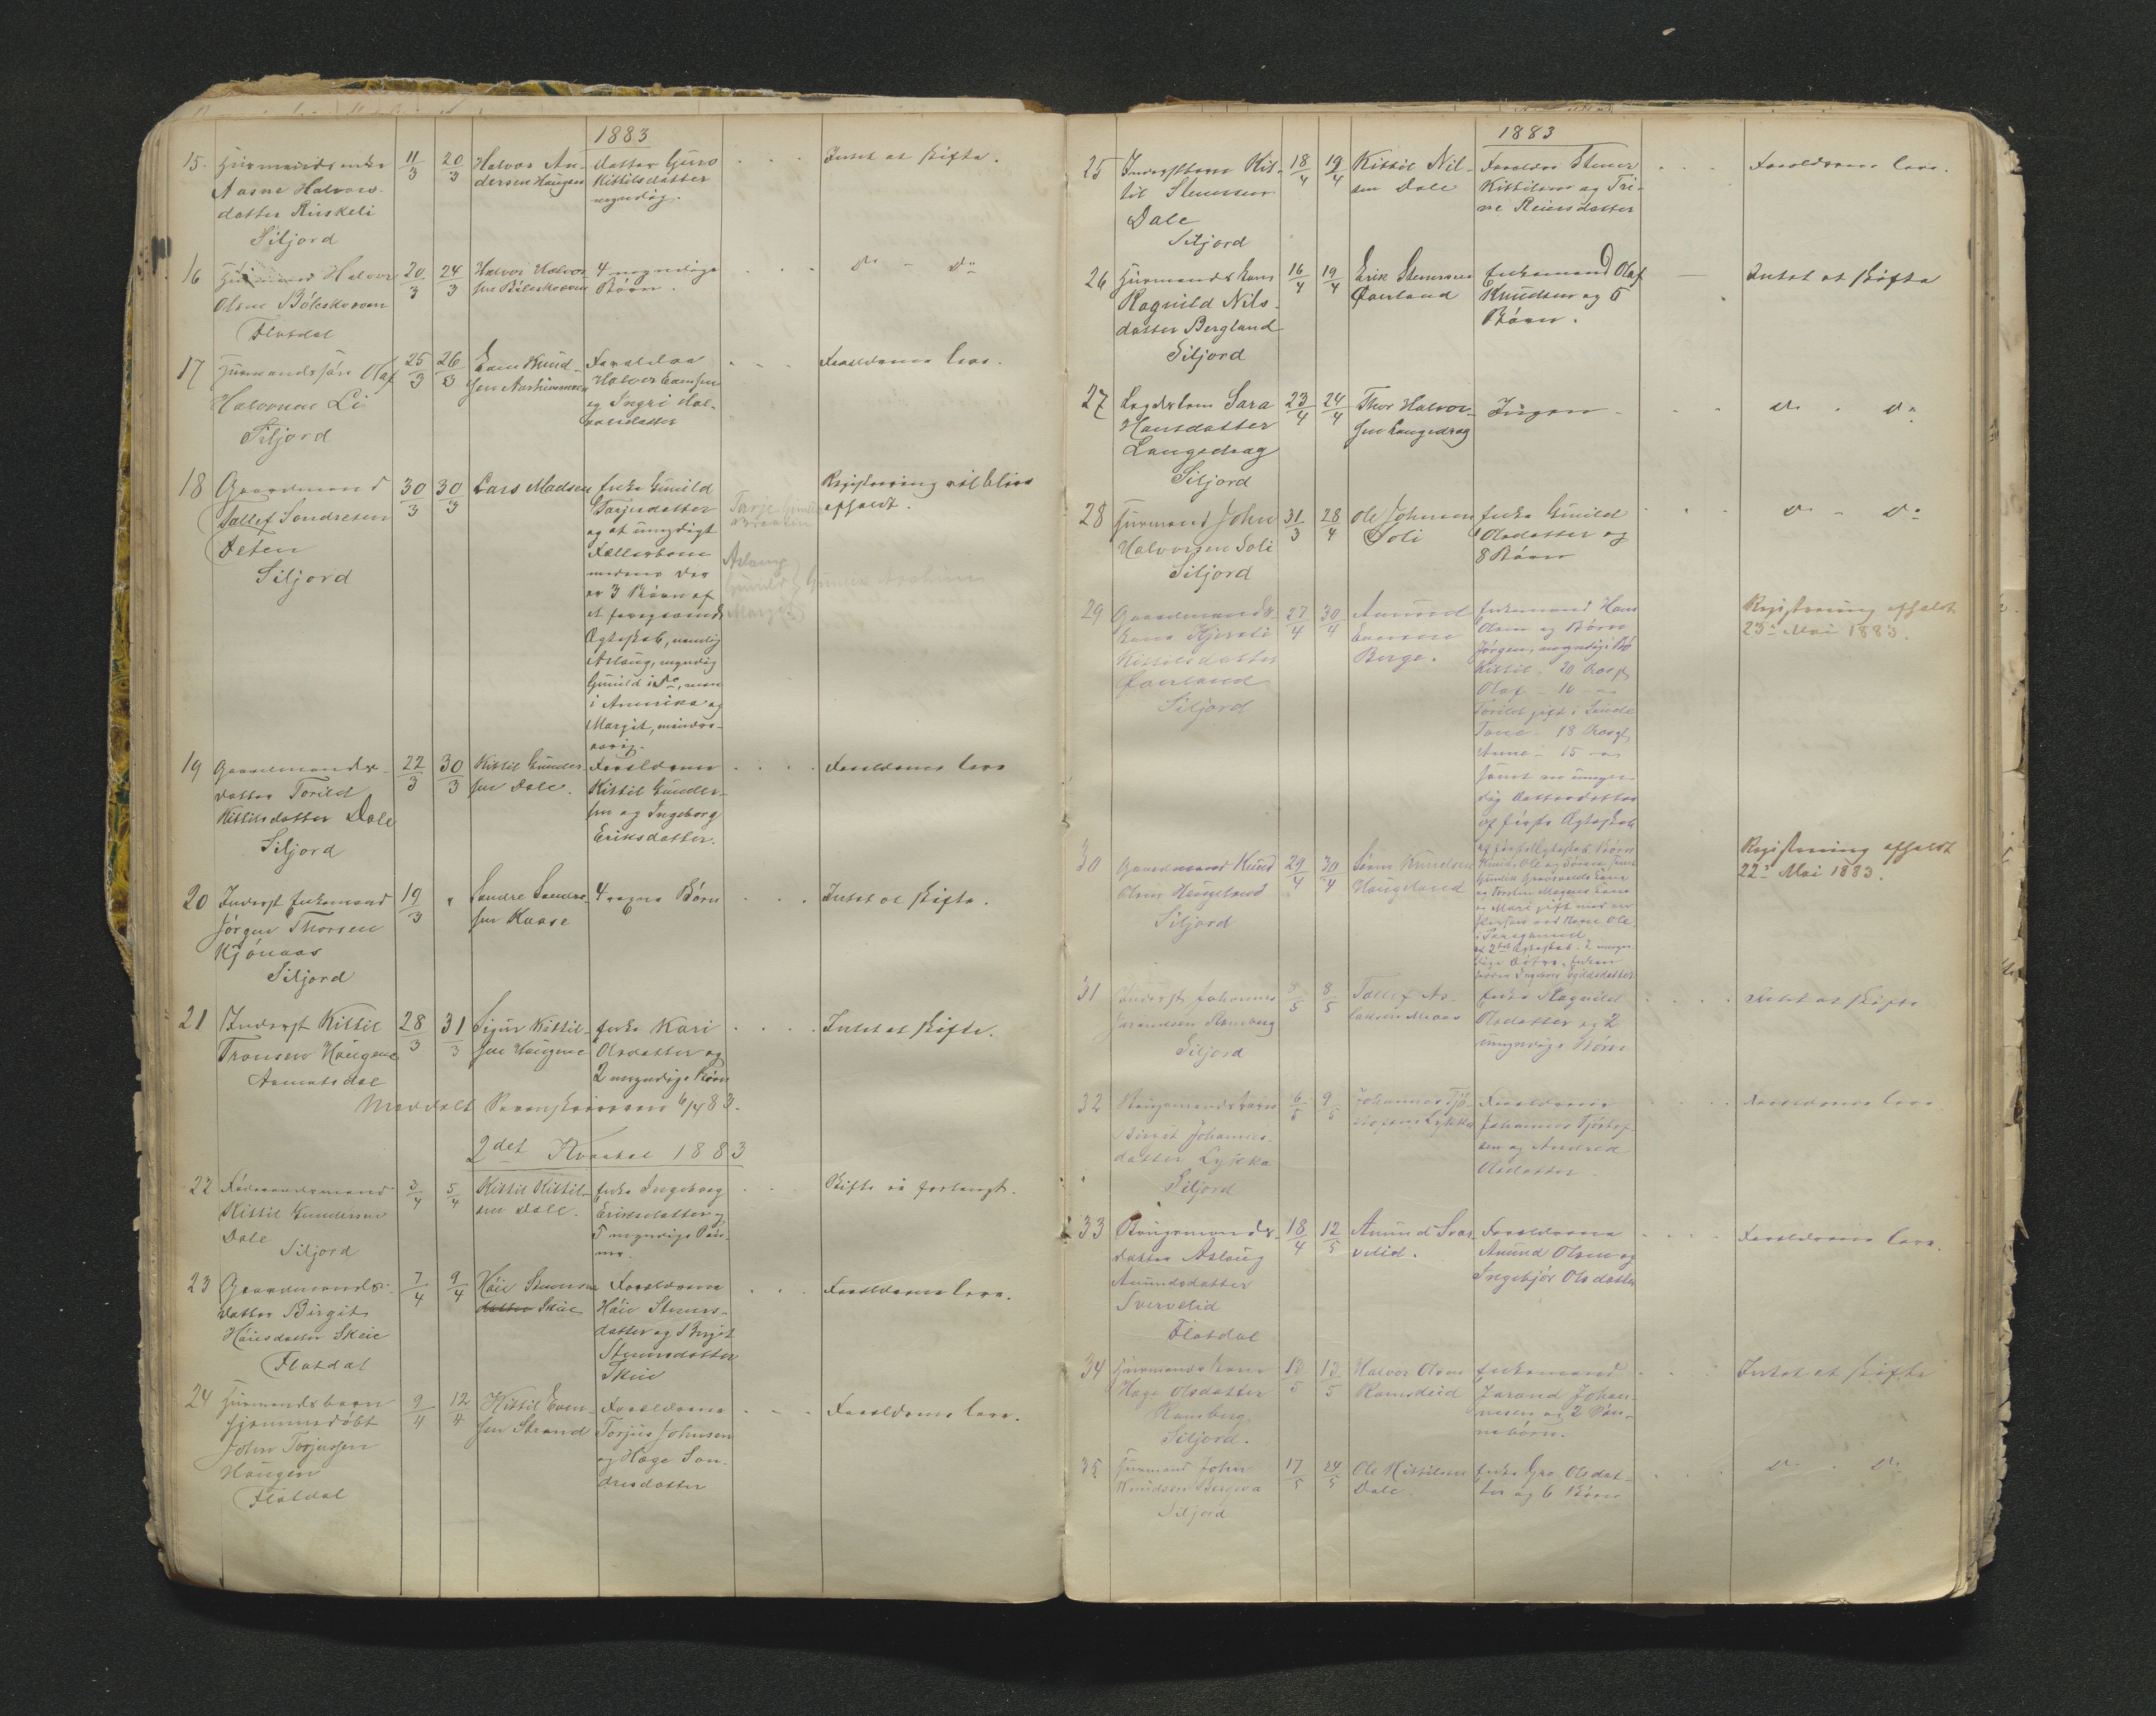 1883
15. Huusmandsenke
Aasne Halvors-
datter Ruskeli
Siljord
11/3
20/3
Halvor An-
dersen Haugen
datter Guro
Kittilsdatter
myndig.
Intet at skifte.
16 Huusmand Halvor
Olsen Böleskoven
Flatdal
20/3
24/3
Halvor Halvor-
sen Böleskoven
4 myndige
Börn.
do - do
17 Huusmandssön Olaf
Halvorsen Li
Siljord
25/3
26/3
Even Knud-
sen
Forældre
Halvor Evensen
og Ingri Hal-
vorsdatter
Forældrene leve.
18 Gaardmand
Tallef Sondresen
Teten
Siljord
30/3
30/3
Lars Madsen
Enke Gunild
Tarjesdatter
og et umyndigt
Fællesbarn
medens der
er 3 Börn af
et foregaaende
Ægteskab, nemlig
Aslaug, myndig
Gunild i do, men
i Amerika og
Margit, mindre-
aarig.
Aslaug
Registrering vil blive
afholdt.
19 Gaardmands-
datter Torild
Kittilsdatter Dale
Siljord
22/3
30/3
Kittil Gunder-
sen Dale.
Forældrene
Kittil Gunder-
sen og Ingeborg
Eriksdatter.
Forældrene leve
20 Inderst Enkemand
Jörgen Thorsen
Kjönaas
Siljord
19/3
"
Sondre Sondre-
sen Kaase
4 voxne Börn
Intet at skifte.
21 Inderst Kittil
Tronsen Haugene
Aamotsdal
28/3
31/3
Sigur Kittil-
sen Haugene
Enke Kari
Olsdatter og
2 myndige Börn
Intet at skifte.
Meddelt Sorenskriveren 6/4 83.
2det Kvartal 1883
22 Föderaadsmand
Kittil Gundersen
Dale
Siljord
3/4
5/4
Kittil Kittil-
sen Dale.
Enke Ingeborg
Eriksdatter og
5 myndige Bör-
ne.
Skifte ei forlangt.
23 Gaardmands-
datter Birgit
Höiesdatter Skeie
Flatdal
7/4
9/4
Höie Steinersen
datter Skeie
Forældrene
Höie Steners-
datter og Birgit
Steinersdatter
Skeie
Forældrene leve.
24 Huusmandsbarn
hjemmedöbt
John Torjussen
Haugen
Flatdal
9/4
12/4
Kittil Even-
sen Strand
Forældrene
Torjus Johnsen
og Hæge Son-
dresdatter
Forældrene leve.
1883
25 Inderstbarn Kit-
til Stenersen
Dale
Siljord
18/4
19/4
Kittil Nil-
sen Dale
Forældre Stener
Kittilsen og Tri-
ne Reiersdatter
Forældrene leve.
26 Huusmandskone
Ragnild Nils-
datter Bergland
Siljord
16/4
19/4
Erik Stenersen
Överland
Enkemand Olaf
Knudsen og 5
Börn.
Intet at skifte
27 Lægdslem Sara
Hansdatter
Langedrag
Siljord
23/4
24/4
Thor Halvor-
sen Langedrag
Ingen
do - do
28 Huusmand John
Halvorsen Soli
Siljord
31/3
28/4
Ole Johnsen
Soli
Enke Gunild
Olsdatter og
8 Börn
do - do
29 Gaardmands-
kone
Kittilsdatter
Överland
Siljord
27/4
30/4
Amund
Evensen
Berge.
Enkemand Hans
Olsen og Börn
Jörgen, myndig i Bö
Kittil - 20 Aar gl
Olaf - 10 -
Torild gift i Sende
Tone - 18 Aar gl
Anne - 15 -
samt en umyn-
dig Datterdatter
af förste Ægteskab
Registrering afholdt
23de Mai 1883.
30 Gaardmand Knud
Olsen Haugeland
Siljord
29/4
30/4
Sören Knudsen
Haugeland
og Mari gift med en
i Porsgrund
Registrering afholdt
22de Mai 1883.
31 Inderst Johannes
Jarandsen Ramberg
Siljord
8/5
Tallef As-
laksen Moen
Enke Ragnild
Olsdatter og 2
umyndige Börn
Intet at skifte
32 Brugsmandsbarn
Birgit Johannes-
datter Lykka
Siljord
6/5
9/5
Johannes Tjö-
stofsen Lykka
Forældrene
Johannes Tjöstof-
sen og Andrea
Olsdatter
Forældrene leve
33 Brugsmands-
datter Aslaug
Amundsdatter
Svervelid
Flatdal
18/4
12/5
Amund Sver-
velid.
Forældrene
Amund Olsen og
Ingebjör Olsdatter
Forældrene leve.
34 Huusmandskone
Hæge Olsdatter
Ramberg
Siljord.
13/5
13/5
Halvor Olsen
Ramslid
Enkemand
Jarand Johan-
nesen og 2 Bör-
nebörn.
Intet at skifte
35 Huusmand John
Knudsen
Siljord
17/5
24/5
Ole Kittilsen
Dale.
Enke Gro Olsdat-
ter og 6 Börn
do - do